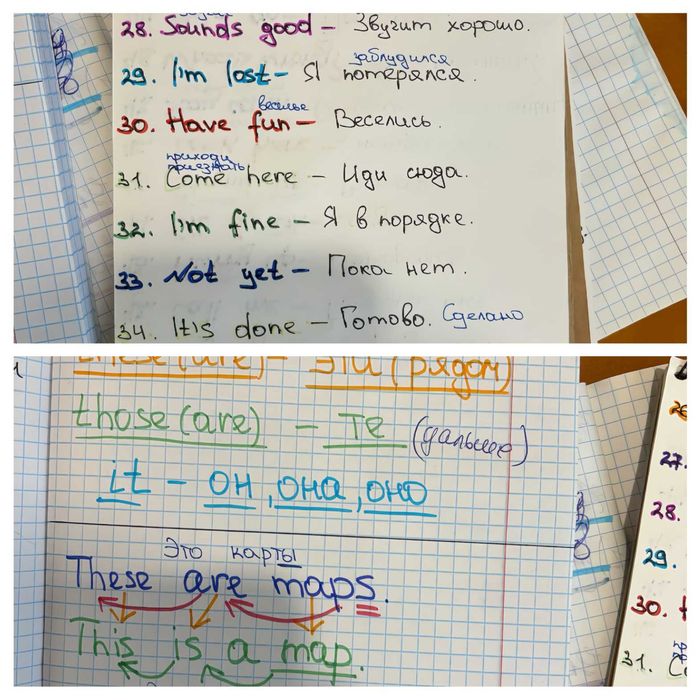 28. Sounds good – Звучит хорошо.
заблудился
29. I'm lost – Я потерялся.
веселье
30. Have fun – Веселись.
приходи
приезжать
31. Come here – Иди сюда.
32. I'm fine – Я в порядке.
33. Not yet – Пока нет.
34. It is done – Готово. Сделано
these (are) – эти (рядом)
those (are) – те (дальше)
it – он, она, оно
Это карты
These are maps.
This is a map.
27.
28.
29.
30.
31. Co